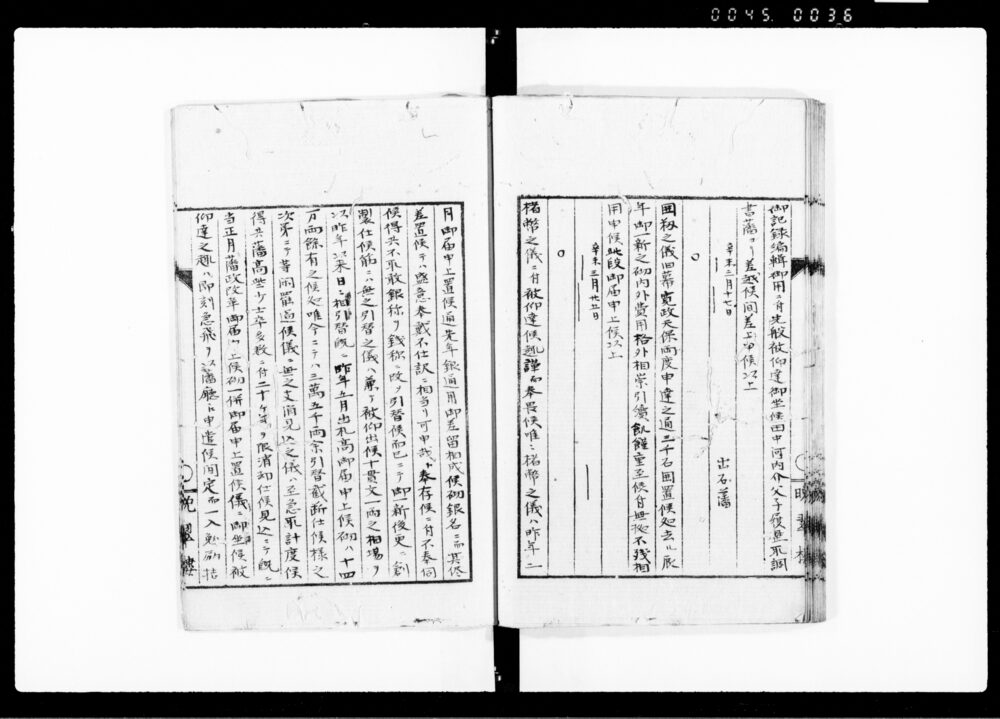 0045. 0036
御記録編輯御用ニ付先般被仰達御坐候田中河内介父子履歴取調
書藩ヨリ差越候間差上申候以上
辛未二月十七日
出石藩
○
囲籾之儀旧幕寛政天保両度申達之通三千石囲置候処去ル辰
年御一新之砌内外費用格外相崇引続飢饉重至候付無拠不残相
用申候此段御届申上候以上
辛未三月廿五日
○
楮幣之儀ニ付被仰達候趣謹而奉畏候唯ニ楮幣之儀ハ昨年二
月御届申上置候通先年銀通用御差留相成候砌銀名ニ而其侭
差置候テハ盛意奉戴不仕訳ニ相当リ可申哉ト奉存候ニ付不奉伺
候得共不取敢銀称ヲ銭称ニ改ヲ引替候而已ニテ御一新後更ニ創
製仕候筋ニハ無之引替之儀ハ兼テ被仰出候十貫文一両之相場ヲ
以昨年以来日ニ相引替既ニ昨年五月出札高御届申上候砌ハ十四
万両余有之候処唯今ニテハ二萬五千両余引替截断仕候様之
次第ニテ等閑罷過候儀ニ無之丈消見込之儀ハ至急取計度候
得共藩高些少士卒多数ニ付二十ケ年ヲ限消却仕候見込ニテ既ニ
当正月藩政改革御届ケ上候砌一併御届申上置候儀ニ御坐候被
仰達之趣ハ即刻急飛ヲ以藩庁ヘ申遣候間定而一入勉励拮
晩翠楼